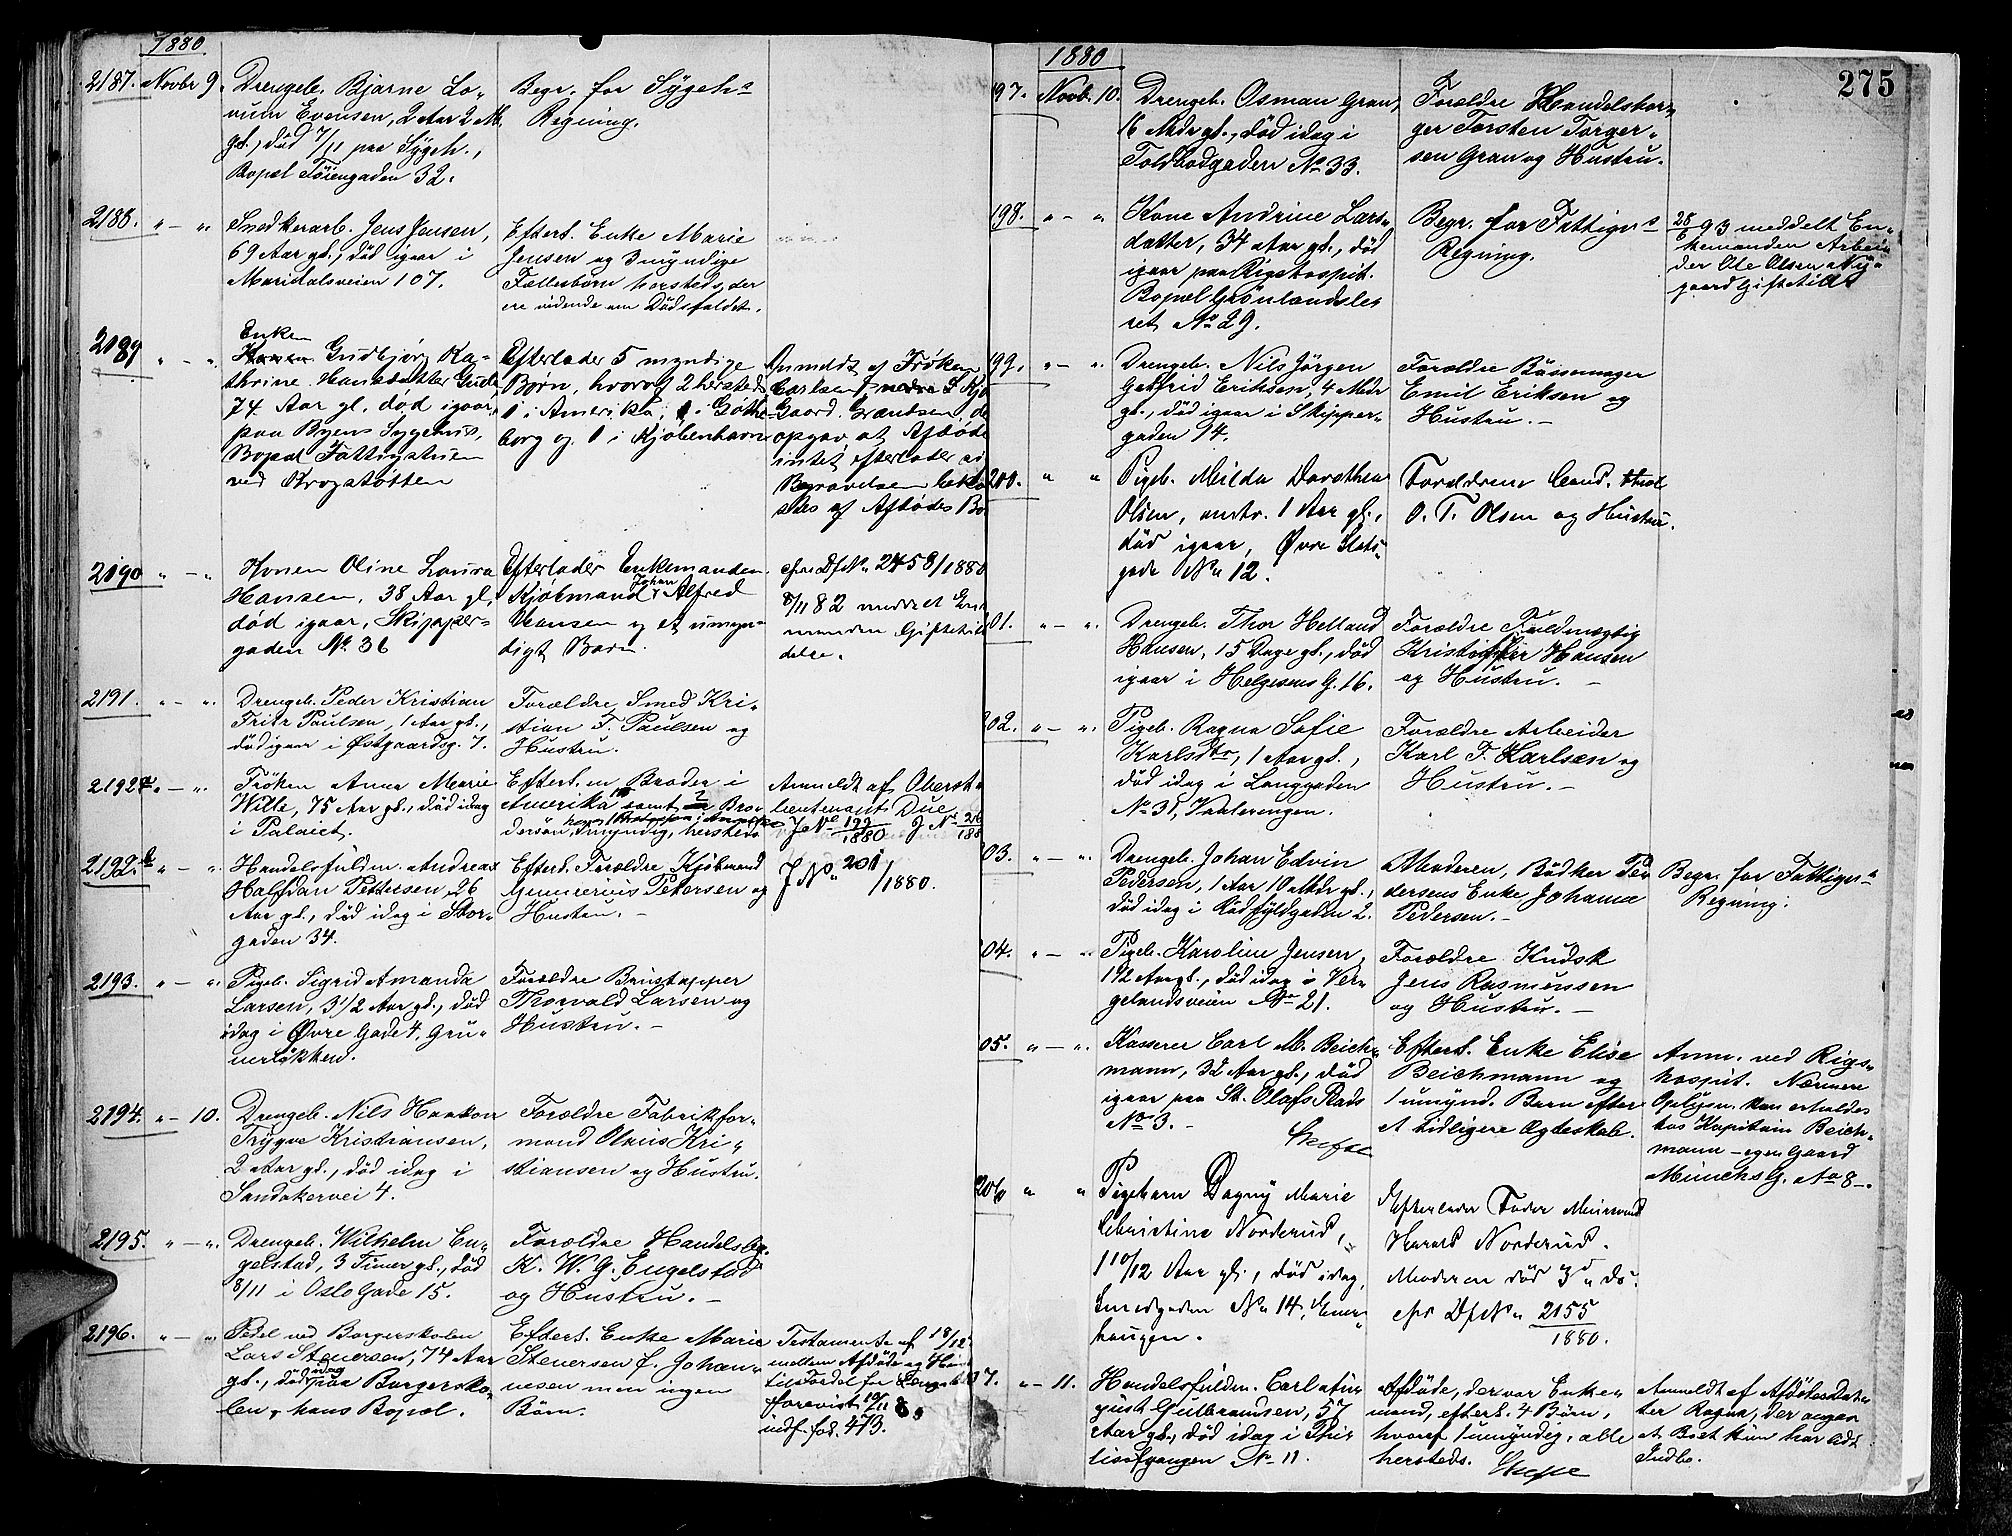 1880
2187. Novbr 9.
Drengeb. Bjarne Lo-
rum Evensen, 2 Aar 2 M.
gl., død 7/11 paa Sygeh.,
Bopæl Tøiengaden 32.
Begr. for Sygehs
Regning.
2188. " - "
Snedkerarb. Jens Jensen,
69 Aar gl., død igaar i
Maridalsveien 107.
Efterl. Enke Marie
Jensen og 3 myndige
Fællesbørn hersteds, der
ere vidende om Dødsfaldet.
2189 " - "
Enken
Gudbjørg Ka-
thrine Hansdatter Gude,
74 Aar gl. død igaar,
paa Byens Sygehus,
Bopæl Fattigstuen
ved Krogstøtten
Efterlader 5 myndige
Børn, hvoraf 2 hersteds
1 i Amerika, 1 i Gøthe-
borg og 1 i Kjøbenhavn
Anmeldt af Frøken
Carlsen
Gaard. Grændsen, der
opgav, at Afdøde
intet efterlader
Begravelsen beko
stes af Afdødes Bo
2190 " - "
Konen Oline Laura
Hansen, 38 Aar gl,
død igaar, Skipper-
gaden No 36
Efterlader Enkemanden
Kjøbmand Johan Alfred
Hansen og et umyn-
digt Barn.
cfr Df No 2458/1880
8/11 82 meddelt Enke
manden Giftetil
delse.
2191. " - "
Drengeb. Peder Kristian
Fritz Paulsen, 1 Aar gl.,
død igaar i Østgaardsg. 7.
Forældre, Smed Kri-
stian F. Paulsen og
Hustru.
2192a " - "
Frøken Anna Marie
Wille, 75 Aar gl., død idag
i Palæet.
Efterl. en Broder i
Amerika samt 2 Bro-
dersøn, myndig, hersteds
Anmeldt af Oberst-
lieutenant Due
J No 199/1880
2192b " - "
Handelsfuldm. Andreas
Halfdan Pettersen, 26
Aar gl., død idag i Stor-
gaden 34.
Efterl. Forældre Kjøbmand
Petersen og
Hustru. -
J No 201/1880.
2193. " - "
Pigeb. Sigrid Amanda
Larsen, 3 1/2 Aar gl., død
idag i Øvre Gade 4. Grü-
nerløkken.
Forældre Bunstapper
Thorvald Larsen og
Hustru. -
2194. " - 10.
Drengeb. Nils Haakon
Trygve Kristiansen,
2 Aar gl., død idag i
Sandakervei 4.
Forældre Fabrikfor-
mand Olaus Kri-
stiansen og Hustru.
2195. " - "
Drengeb. Wilhelm En-
gelstad, 3 Timer gl., død
8/11 i Oslo Gade 15.
Forældre Handelsbg.
K. W. G. Engelstad
og Hustru. -
2196. " - "
Pedel ved Borgerskolen
Lars Stenersen, 74 Aar
gl., død idag paa Borgersko-
len, hans Bopæl.
Efterl. Enke Marie
Stenersen f. Johan-
nesen men ingen
Børn.
Testamente af 18/12
mellem Afdøde og Hustru
til Fordel for Længstl.
forevist 10/11 80
indf. fol. 473.
1880
275
97. Novb. 10.
Drengeb. Osman Gran,
16 Mdr gl., død idag i
Toldbodgaden No 33.
Forældre Handelsbor-
ger Torsten Torger-
sen Gran og Hustru.
198. " - "
Kone Andrine Lars-
datter, 34 Aar gl., død
igaar paa Rigshospit.
Bopæl Grønlandsle-
ret No 29.
Begr. for Fattigvs
Regning.
28/6 93 meddelt En-
kemanden Arbei-
der Ole Olsen Ny-
gaard Giftetill
199. " - "
Drengeb. Nils Jörgen
Gotfrid Eriksen, 4 Mdr
gl., død igaar i Skipper-
gaden 14.
Forældre Bøssemager
Emil Eriksen og
Hustru. -
200. " "
Pigeb. Milda Dorothea
Olsen, omtr. 1 Aar gl.,
død igaar, Øvre Slots-
gade No 12.
Forældrene Cand. theol
O. T. Olsen og Hustru.
01. " - "
Drengeb. Thor Helland
Hansen, 15 Dage gl., død
igaar i Helgesens G. 16.
Forældre Fuldmægtig
Kristoffer Hansen
og Hustru. -
202. " - "
Pigeb. Ragna Sofie
Karlsdtr, 1 Aar gl.,
død idag i Langgaden
No 35, Vaalerengen.
Forældre Arbeider
Karl F. Karlsen og
Hustru. -
03. " - "
Drengeb. Johan Edvin
Pedersen, 1 Aar 10 Mdr gl.,
død idag i Rødfyldgaden 2.
Moderen, Bødker Pe-
dersens Enke Johanne
Pedersen. -
Begr. for Fattigvs
Regning.
04. " - "
Pigeb. Karoline Jensen,
1 1/2 Aar gl., død idag i Ver-
gelandsveien No 21.
Forældre Kudsk
Jens Rasmussen
og Hustru. -
05. " - "
Kasserer Carl M. Beich-
mann, 32 Aar gl., død
igaar paa St. Olafs Plads
No 3. -
Skifte
Efterl. Enke Elise
Beichmann og
1 umynd. Barn efter
et tidligere Ægteskab.
Anm. ved Rigs-
hospit. Nærmere
Oplysn. kan erholdes
hos Kapitain Beich-
mann - egen Gaard
Munchs G. No 8 -.
206 " "
Pigebarn Dagny Marie
Christine Norderud,
1 10/12 Aar gl., død idag,
Smedgaden No 14, Ener-
haugen.
Efterlader Fader Murmand
Harald Norderud.
Moderen død 3d ds.
cfr Df No 2155/1880.
7. " - 11.
Handelsfuldm. Carl Au-
gust Gulbrandsen, 57
Aar gl., død idag i Thir
liofgangen No 11.
Afdøde, der var Enke-
mand, efterl. 4 Børn,
hvoraf 1 umyndig, alle
hersteds.
Skifte
Anmeldt af Afdødes Dat-
ter Ragna, der angav
at Boet kun har lidt
Indbo.